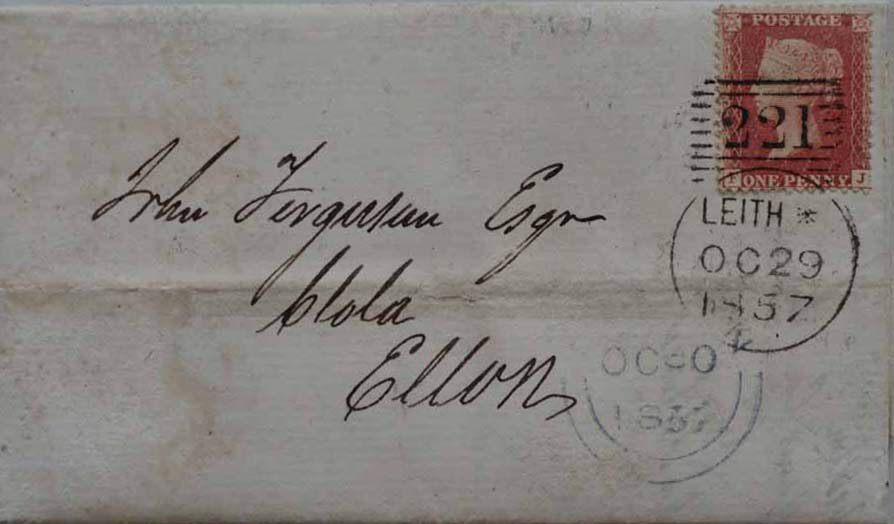 POSTAGE
221
ONE PENNY J
LEITH *
OC 29
1857
John Ferguson Esqr
Clola
Ellon
OC 30
1857